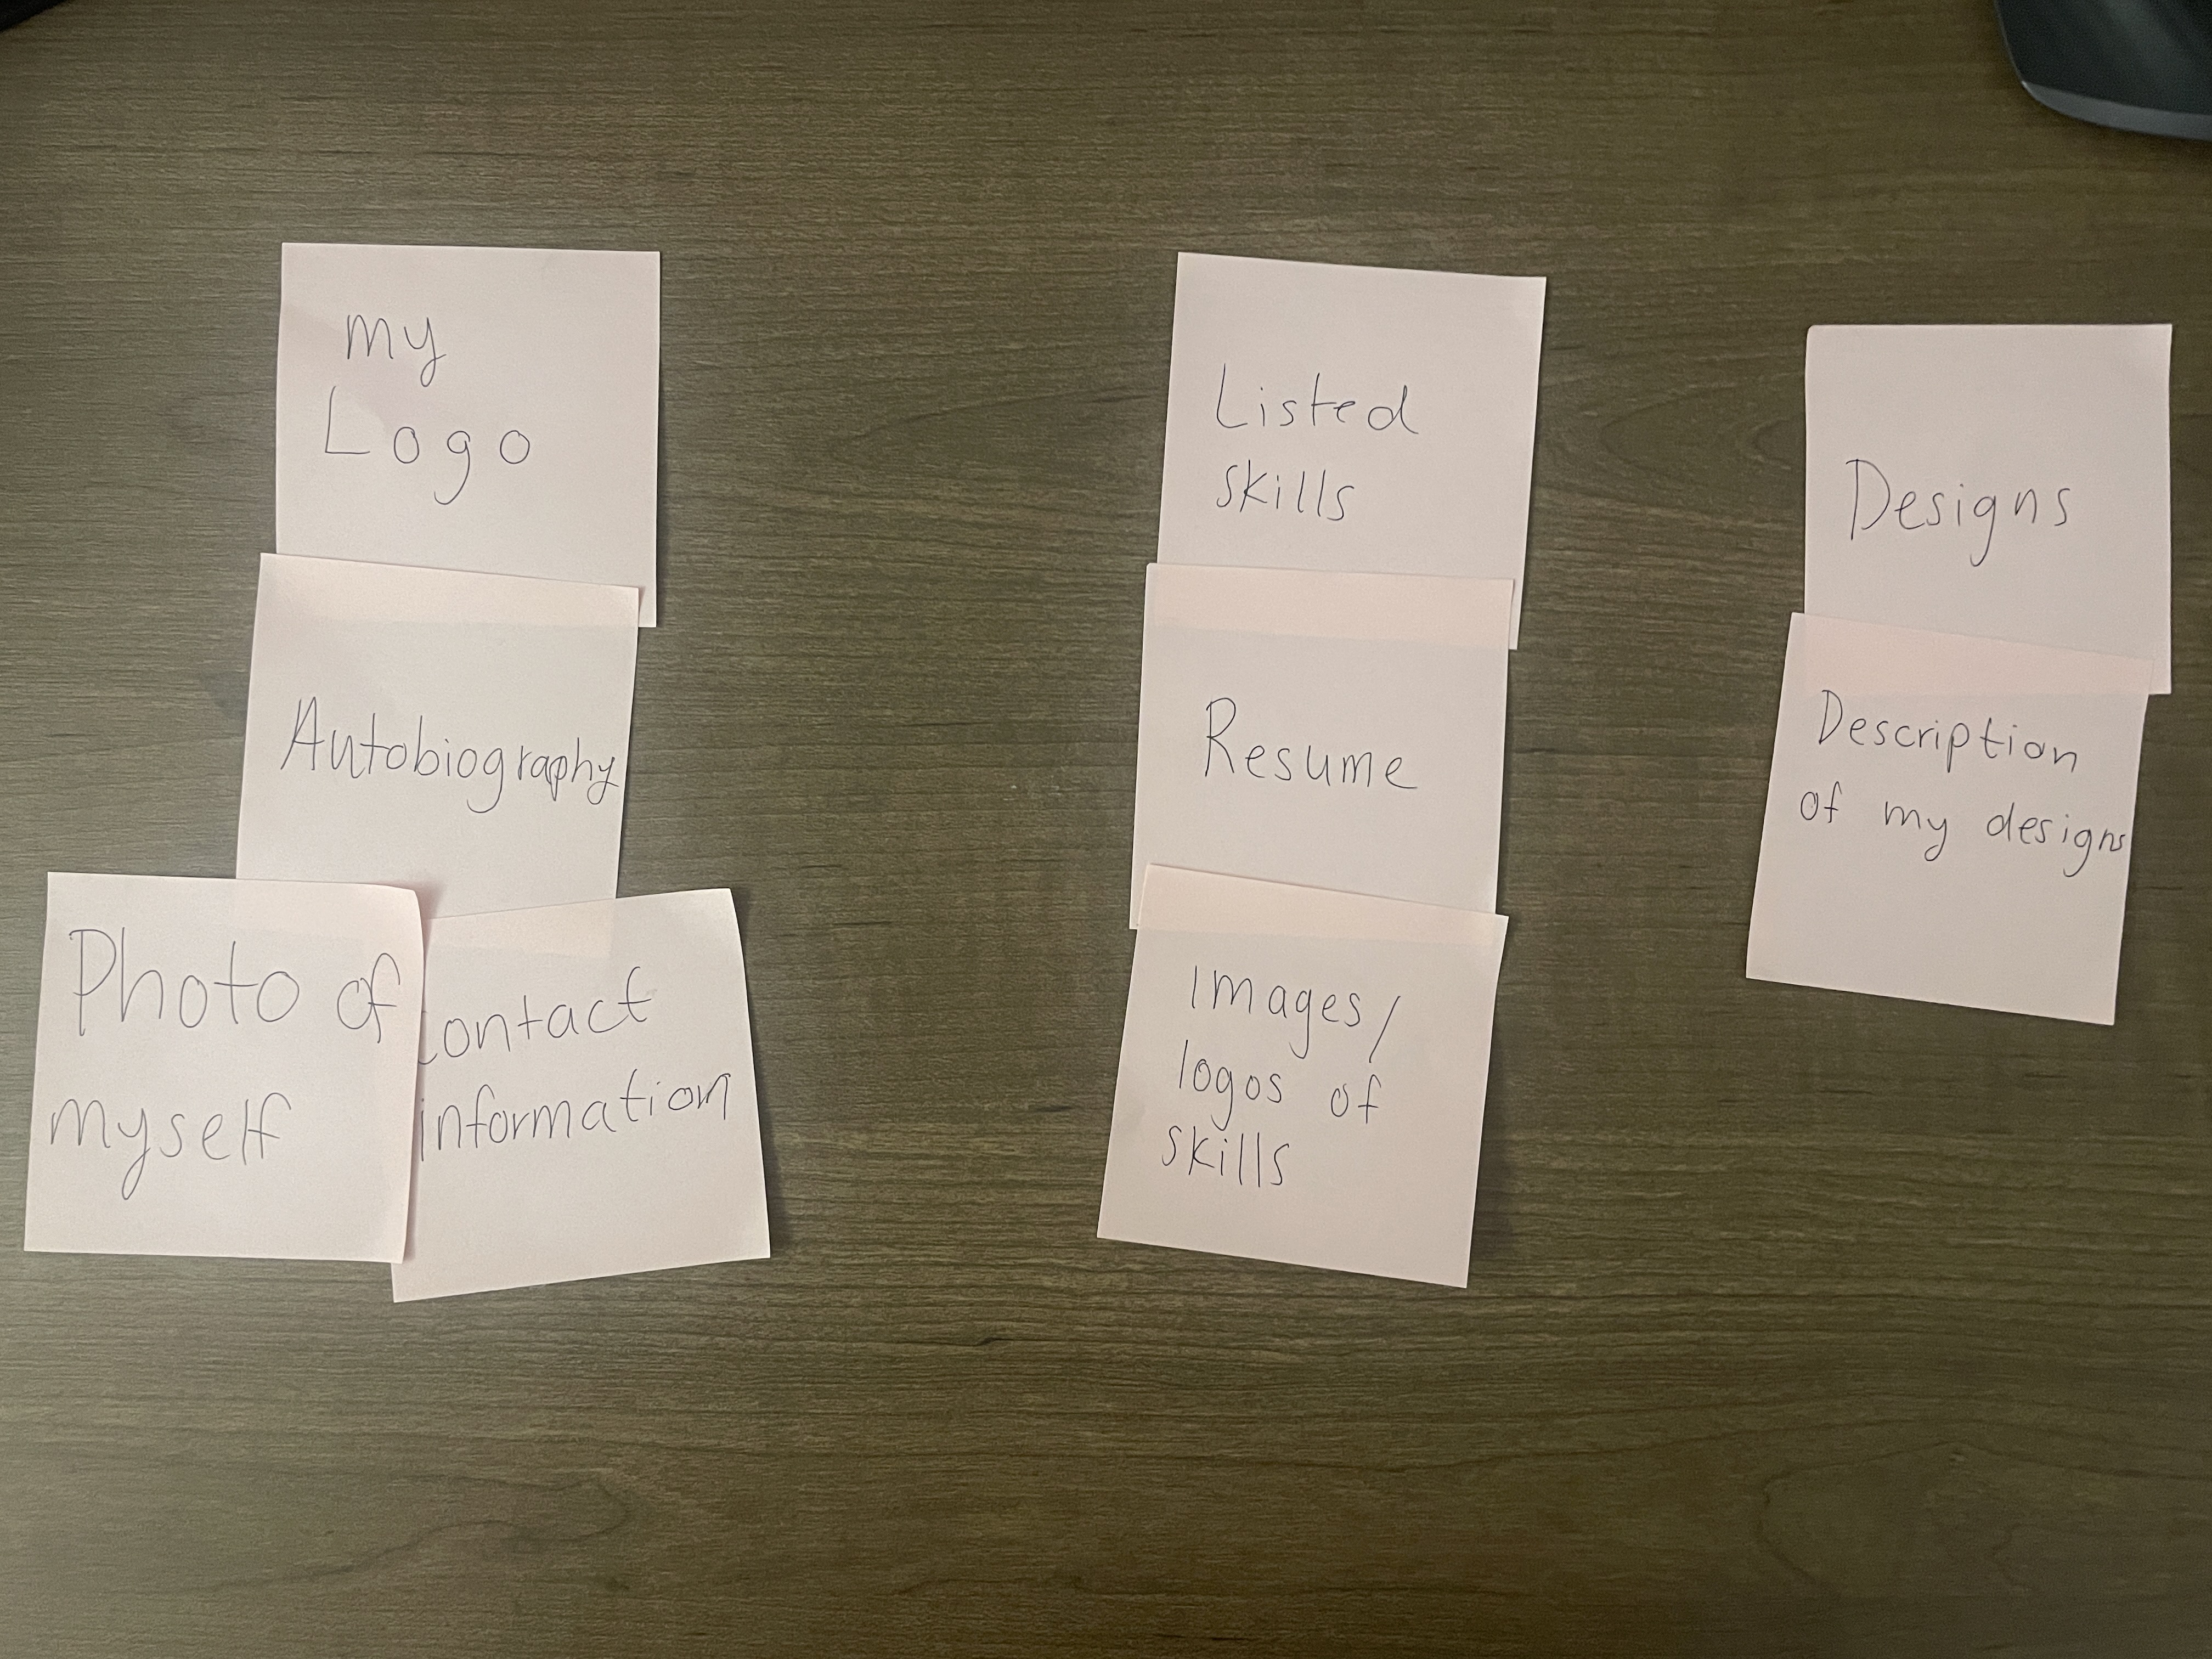 my
Logo
Autobiography
Photo of
myself
Contact
information
Listed
skills
Resume
Images/
logos of
skills
Designs
Description
of my designs